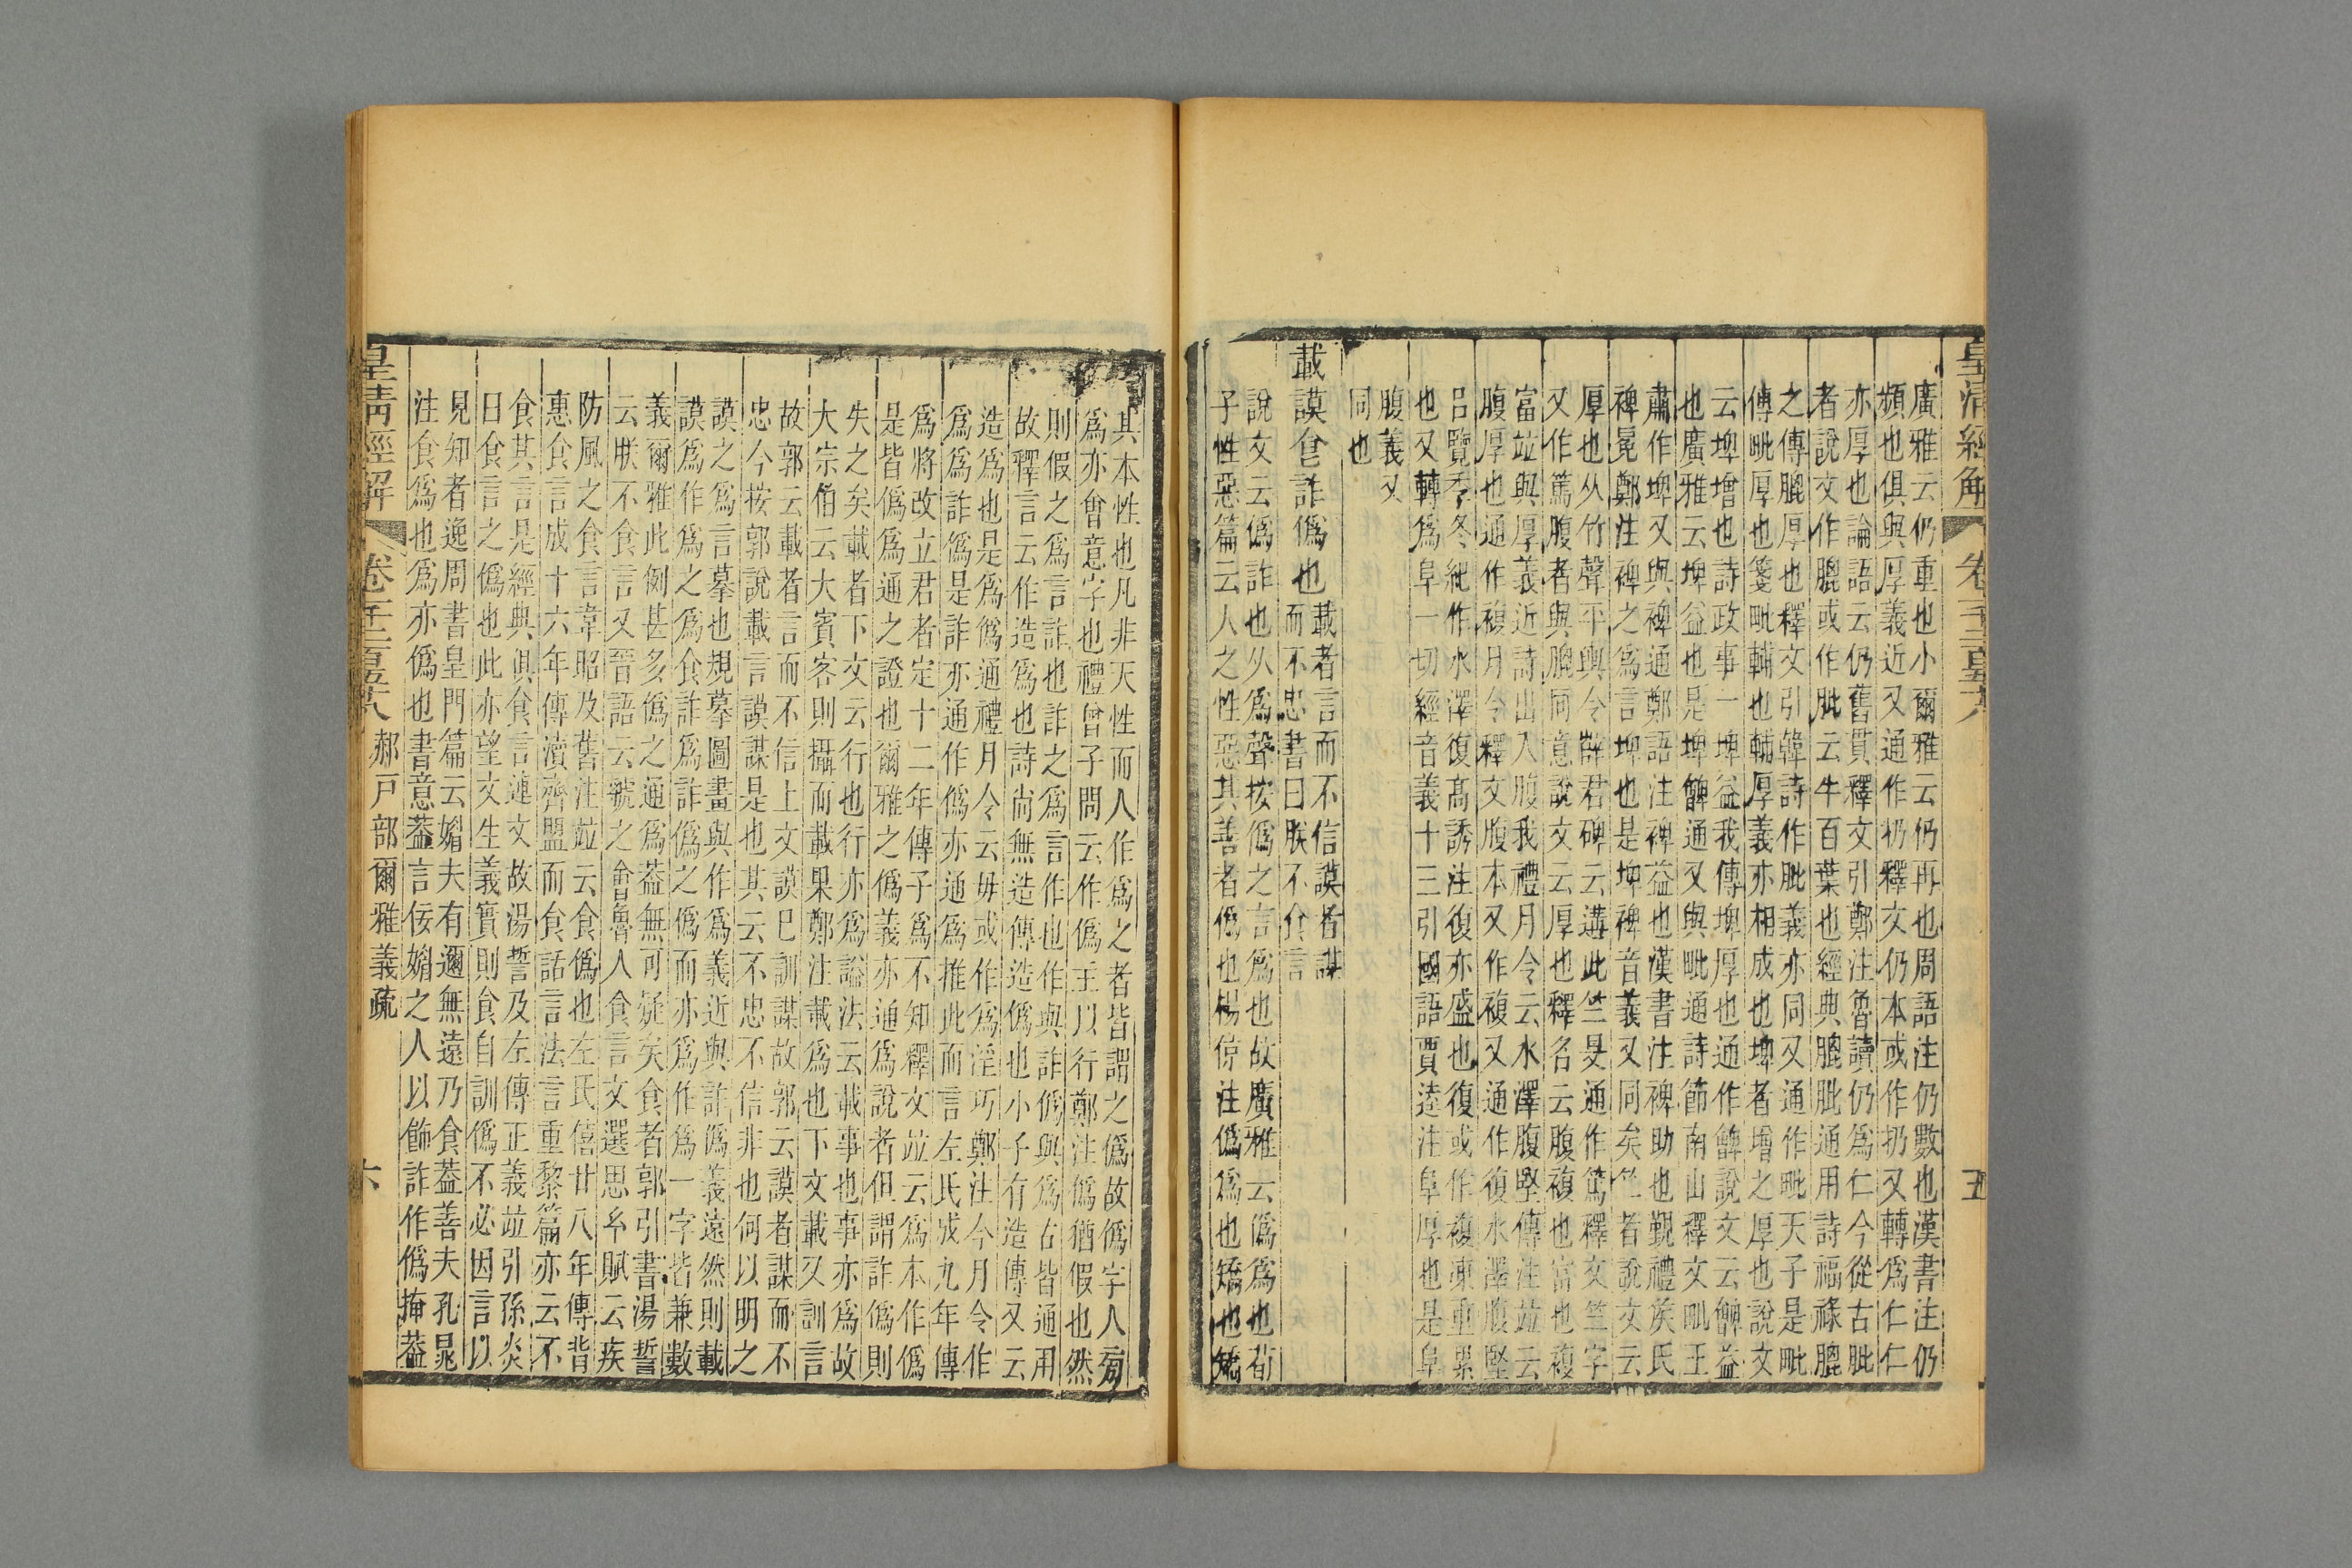 皇清經解
五
廣雅云仍重也小爾雅云仍再也周語注仍數也漢書注仍
頻也俱與厚義近又通作扔釋文仍本或作扔又轉爲仁仁
亦厚也論語云仍舊貫釋文引鄭注魯讀仍爲仁今從古肶
者說文作膍或作肶云牛百葉也經典膍肶通用詩福祿膍
之傳膍厚也釋文引韓詩作肶義亦同又通作毗天子是毗
傳毗厚也箋毗輔也輔厚義亦相成也埤者增之厚也說文
云埤增也詩政事一埤益我傳埤厚也通作𩫫說文云𩫫益
也廣雅云埤益也是埤𩫫通又與毗通詩節南山釋文毗王
肅作埤又與裨通鄭語注裨益也漢書注裨助也覲禮矦氏
裨冕鄭注裨之爲言埤也是埤裨音義又同矣竺者說文云
厚也从竹聲平與令薜君碑云遘此竺旻通作篤釋文竺字
又作篤腹者與膍同意說文云厚也釋名云腹複也富也複
富竝與厚義近詩出入腹我禮月令云水澤腹堅傳注竝云
腹厚也通作複月令釋文腹本又作複又通作復水澤腹堅
呂覽季冬紀作水澤復高誘注復亦盛也復或作複凍重累
也又轉爲阜一切經音義十三引國語賈逵注阜厚也是阜
腹義又
同也
載謨食詐僞也
載者言而不信謨者謀
而不忠書曰朕不食言
說文云僞詐也从爲聲按僞之言爲也故廣雅云僞爲也荀
子性惡篇云人之性惡其善者僞也楊倞注僞爲也矯也矯
其本性也凡非天性而人作爲之者皆謂之僞故僞字人旁
爲亦會意字也禮曾子問云作僞主以行鄭注僞猶假也然
則假之爲言詐也詐之爲言作也作與詐僞與爲古皆通用
故釋言云作造爲也詩尚無造傳造僞也小子有造傳又云
造爲也是爲僞通禮月令云毋或作爲淫巧鄭注今月令作
爲爲詐僞是詐亦通作僞亦通爲推此而言左氏成九年傳
爲將改立君者定十二年傳子爲不知釋文竝云爲本作僞
是皆僞爲通之證也爾雅之僞義亦通爲說者但謂詐僞則
失之矣載者下文云行也行亦爲謚法云載事也事亦爲故
大宗伯云大賓客則攝而載果鄭注載爲也下文載又訓言
故郭云載者言而不信上文謨已訓謀故郭云謨者謀而不
忠今按郭說載言謨謀是也其云不忠不信非也何以明之
謨之爲言摹也規摹圖畫與作爲義近與詐僞義遠然則載
謨爲作爲之爲食詐爲詐僞之僞而亦爲作爲一字皆兼數
義爾雅此例甚多僞之通爲葢無可疑矣食者郭引書湯誓
云朕不食言又晉語云虢之會魯人食言文選思𢆯賦云疾
防風之食言韋昭及舊注竝云食僞也左氏僖廿八年傳背
惠食言成十六年傳瀆齊盟而食話言法言重黎篇亦云不
食其言是經典俱食言連文故湯誓及左傳正義竝引孫炎
曰食言之僞也此亦望文生義實則食自訓僞不必因言以
見知者逸周書皇門篇云媚夫有邇無遠乃食葢善夫孔晁
注食爲也爲亦僞也書意葢言佞媚之人以飾詐作僞掩葢
皇清經解
郝戶部爾雅義疏
六